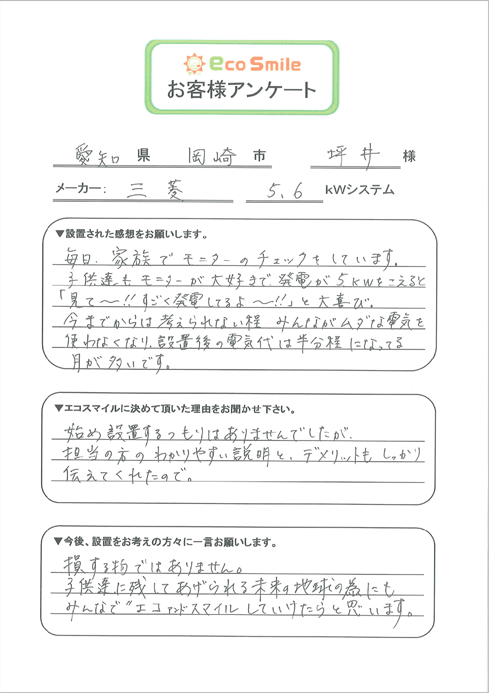 eco Smile
お客様アンケート
愛知 県 岡崎 市 坪井 様
メーカー: 三菱 5.6 kWシステム
▼設置された感想をお願いします。
毎日、家族でモニターのチェックをしています。
子供達もモニターが大好きで発電が5kWをこえると
「見て〜!!すごく発電してるよ〜!!」と大喜び。
今までからは考えられない程 みんながムダな電気を
使わなくなり、設置後の電気代は半分程になってる
月が多いです。
▼エコスマイルに決めて頂いた理由をお聞かせ下さい。
始め設置するつもりはありませんでしたが、
担当の方のわかりやすい説明と、デメリットもしっかり
伝えてくれたので。
▼今後、設置をお考えの方々に一言お願いします。
損する物ではありません。
子供達に残してあげられる未来の地球の為にも
みんなで"エコアンドスマイルしていけたらと思います。